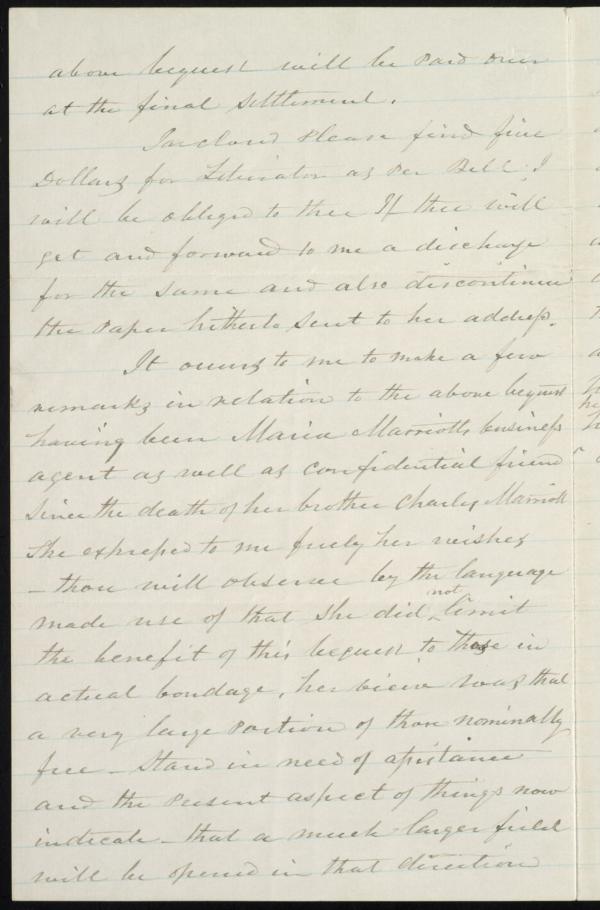 above bequest will be Paid over
at the final Settlement.
Inclosed Please find five
Dollars for Liberator as Per Bill. I
will be obliged to thee If thee will
get and forward to me a discharge
for the same and also discontinue
the Paper hitherto sent to her address.
It occurs to me to make a few
remarks in relation to the above bequest
having been Maria Marriotts business
agent as well as confidential friend
Since the death of her brother Charles Marriott
She expressed to me freely her wishes
- thou will observe by the language
made use of that she did not limit
the benefit of this bequest to those in
actual bondage, her view was that
a very large Portion of those nominally
free - Stand in need of assistance
and the Present aspect of things now
indicate - that a much larger field
will be opened in that direction